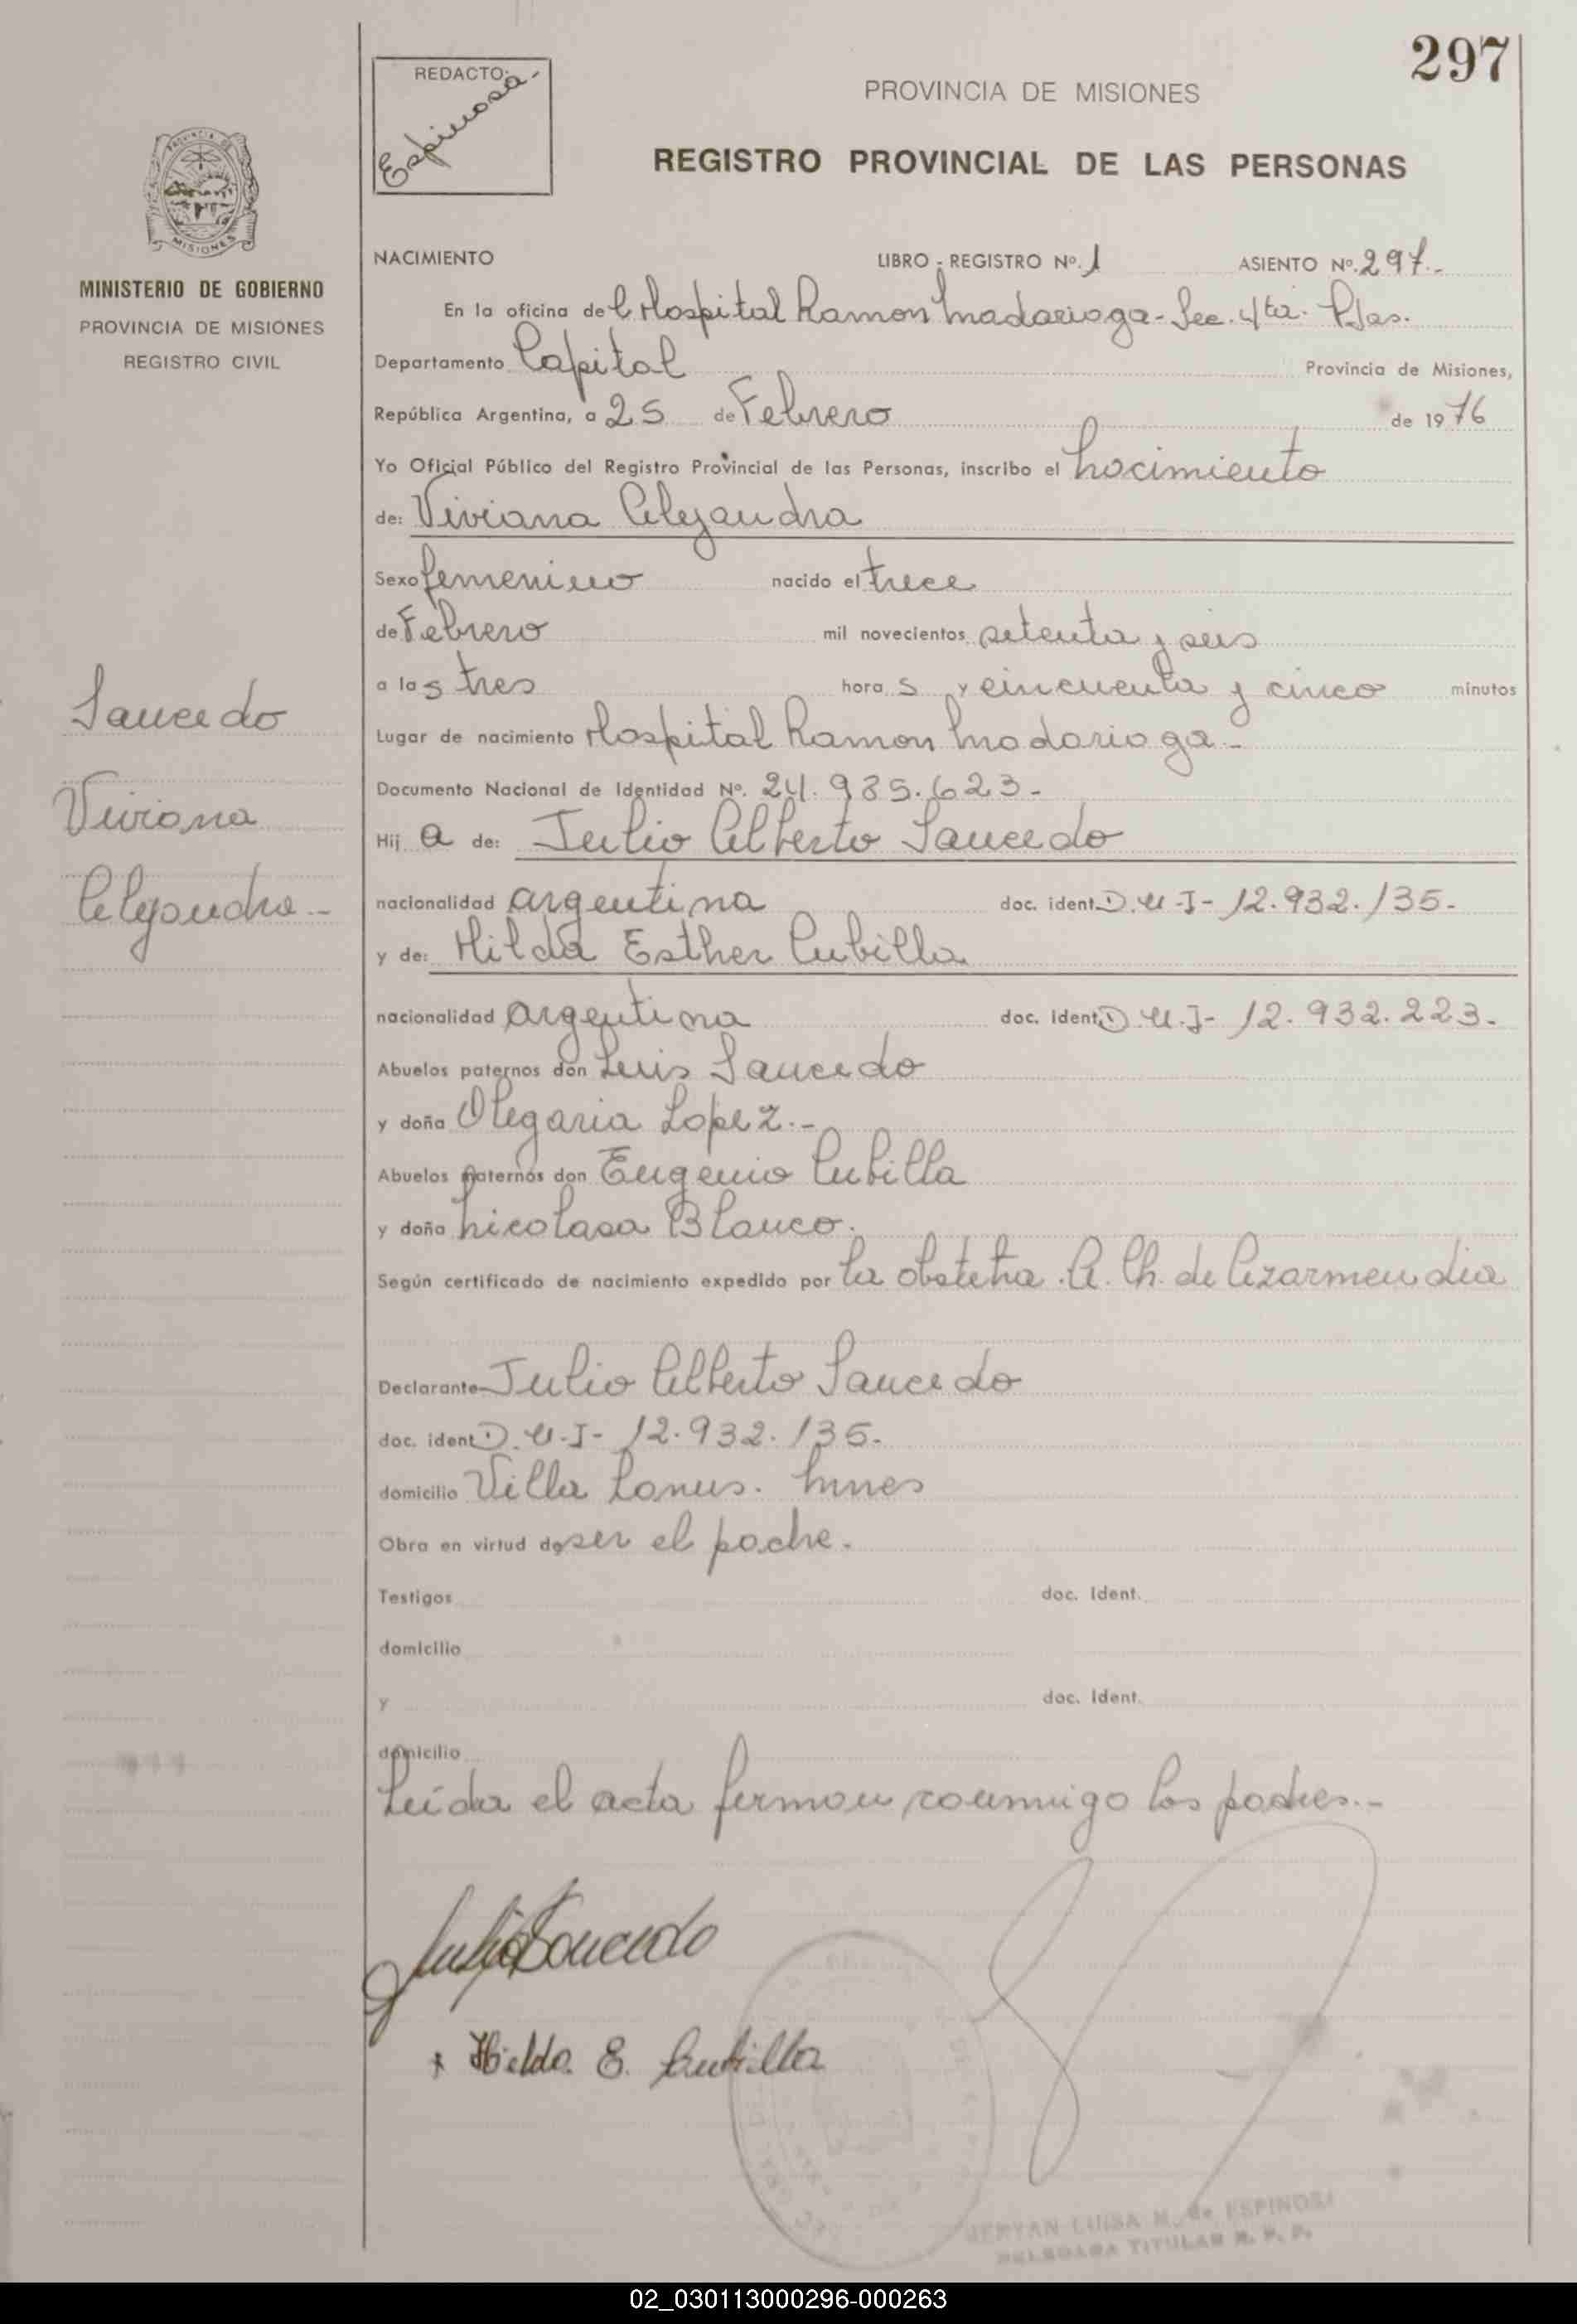 297
REDACTO:
Espinosa-
PROVINCIA DE MISIONES
REGISTRO PROVINCIAL DE LAS PERSONAS
MISIONES
MINISTERIO DE GOBIERNO
PROVINCIA DE MISIONES
REGISTRO CIVIL
NACIMIENTO LIBRO - REGISTRO Nº. 1 ASIENTO Nº. 297.-
En la oficina del Hospital Ramon Madariaga - Sec. 4ta. Pdas.
Departamento Capital Provincia de Misiones,
República Argentina, a 25 de Febrero de 1976
Yo Oficial Público del Registro Provincial de las Personas, inscribo el nacimiento
de: Viviana Alejandra
Sexo femenino nacido el trece
de Febrero mil novecientos setenta y seis
a las tres horas y cincuenta y cinco minutos
Lugar de nacimiento Hospital Ramon Madariaga-
Documento Nacional de Identidad Nº. 24.985.623-
Hija de: Julio Alberto Saucedo
nacionalidad argentina doc. ident. D.N.I- 12.932.135-
y de: Hilda Esther Cubilla
nacionalidad argentina doc. ident. D.N.I- 12.932.223-
Abuelos paternos don Luis Saucedo
y doña Olegaria Lopez.-
Abuelos maternos don Eugenio Cubilla
y doña Nicolasa Blanco.
Según certificado de nacimiento expedido por la obstetra A. Ch. de Azarmendia
Declarante Julio Alberto Saucedo
doc. ident. D.N.I- 12.932.135-
domicilio Villa Lanus. Mnes
Obra en virtud de ser el padre.
Testigos doc. Ident.
domicilio
y doc. Ident.
domicilio
Leída el acta firman conmigo los padres.-
Saucedo
Viviana
Alejandra-
Julio Saucedo
x Hilda E. Cubilla
LUISA M. de ESPINOSA
DELEGADA TITULAR R. P. P.
02_030113000296-000263